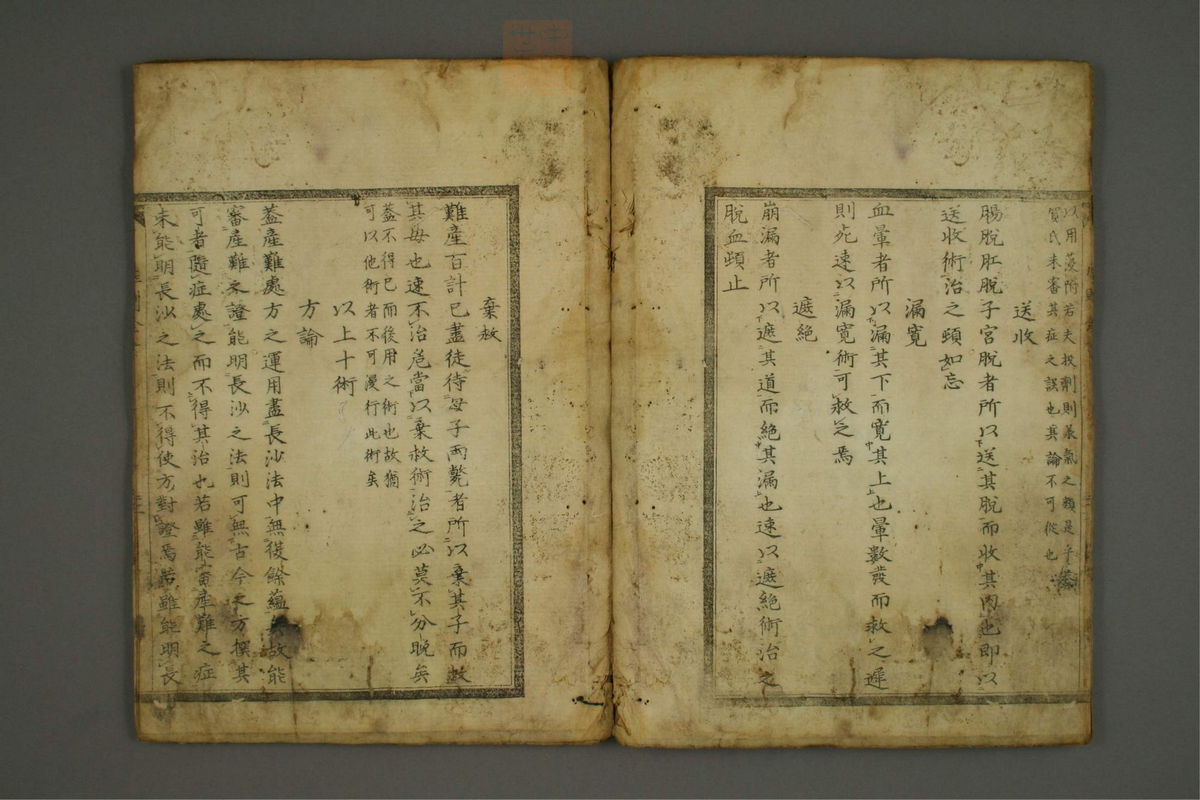 以用莈附若夫扱劑則蒸氣之類是乎蓋
賀氏未審其症之誤也其論不可從也
送收
腸脫肛脫子宮脫者所以送其脫而收其內也即以
送收術治之頭如忘
漏寛
血暈者所以漏其下而寛其上也暈數發而救之遲
則死速以漏寛術可救之焉
遮絕
崩漏者所以遮其道而絕其漏也速以遮絕術治之
脫血頭止
棄救
難產百計已盡徒待母子兩斃者所以棄其子而救
其母也速不治危當以棄救術治之必莫不分娩矣
蓋不得已而後用之術也故猶
可以他術者不可漫行此術矣
以上十術
方論
蓋產難處方之運用盡長沙法中無復餘蘊故能
審產難之證能明長沙之法則可無古今之方撰其
可者隨症處之而不得其治也若雖能審產難之症
未能明長沙之法則不得使方對證焉若雖能明長